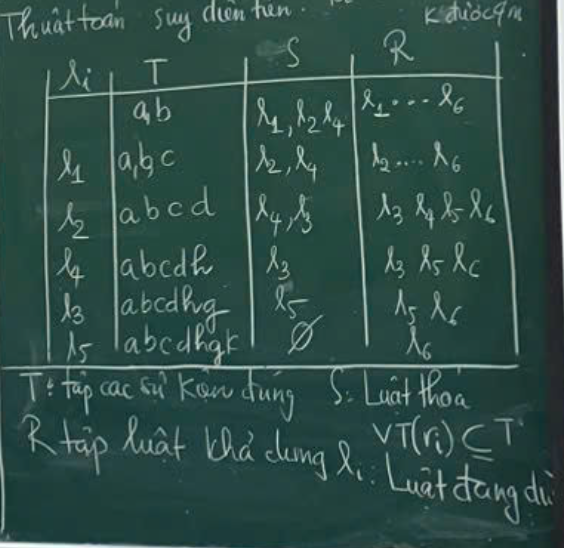 Thuật toán suy diễn tiến. k được q m
ri T S R
a,b r1, r2 r4 r1 .... r6
r1 a,b c r2, r4 r2 .... r6
r2 a b c d r4, r3 r3 r4 r5 r6
r4 abcdh r3 r3 r5 r6
r3 abcdhg r5 r5 r6
r5 abcdhgk ∅ r6
T: tập các sự kiện đúng S: Luật thoả
VT(ri) ⊆ T
R tập luật khả dụng ri: Luật đang